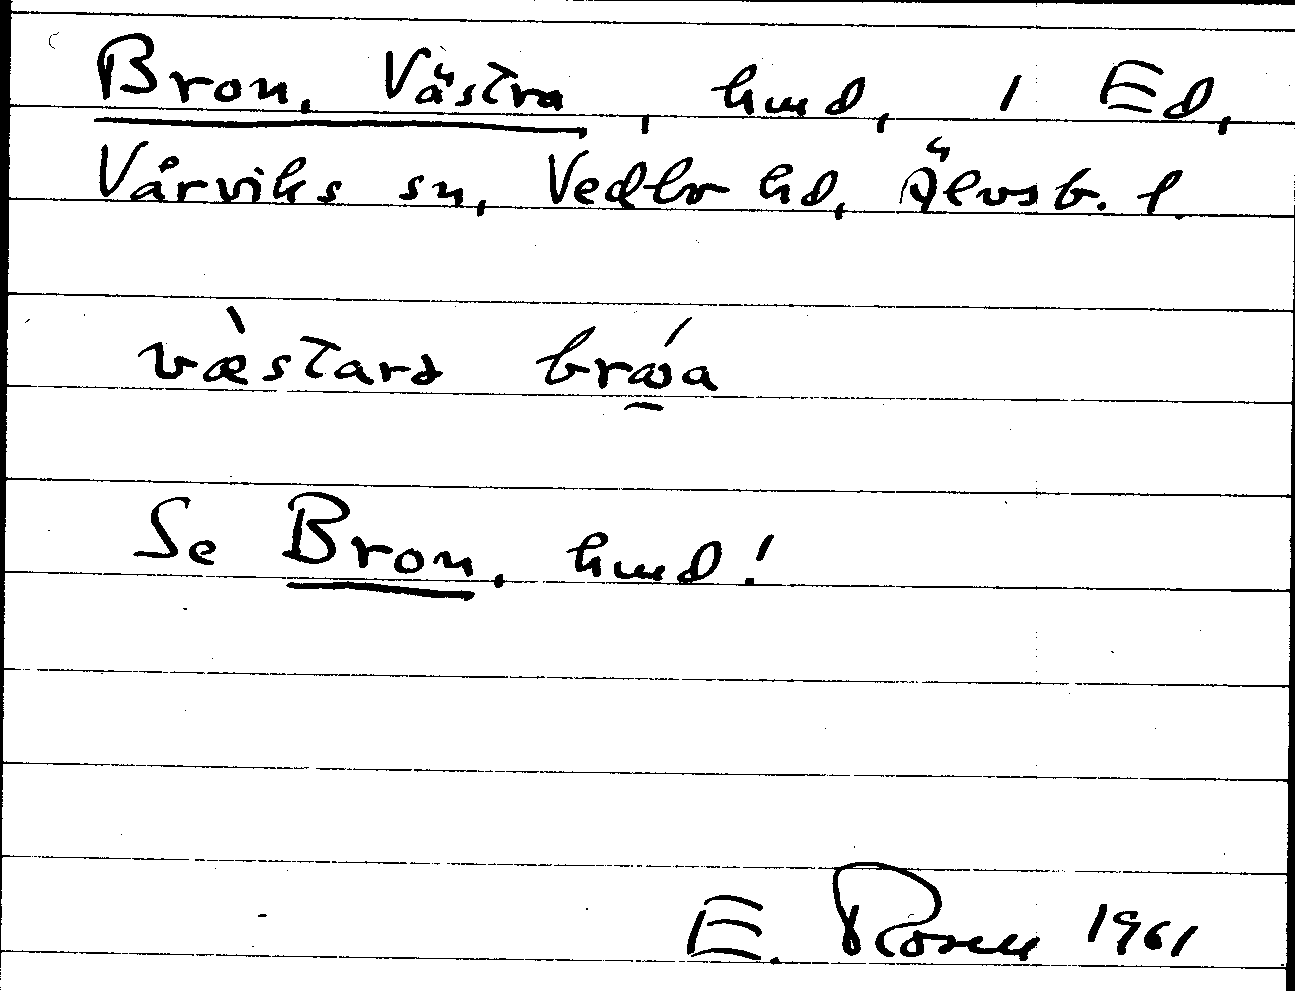 Bron, Västra, hmd, 1 Ed,
Vårviks sn, Vedbo hd, Älvsb. l.
Se Bron, hmd!
E. Rosen 1961